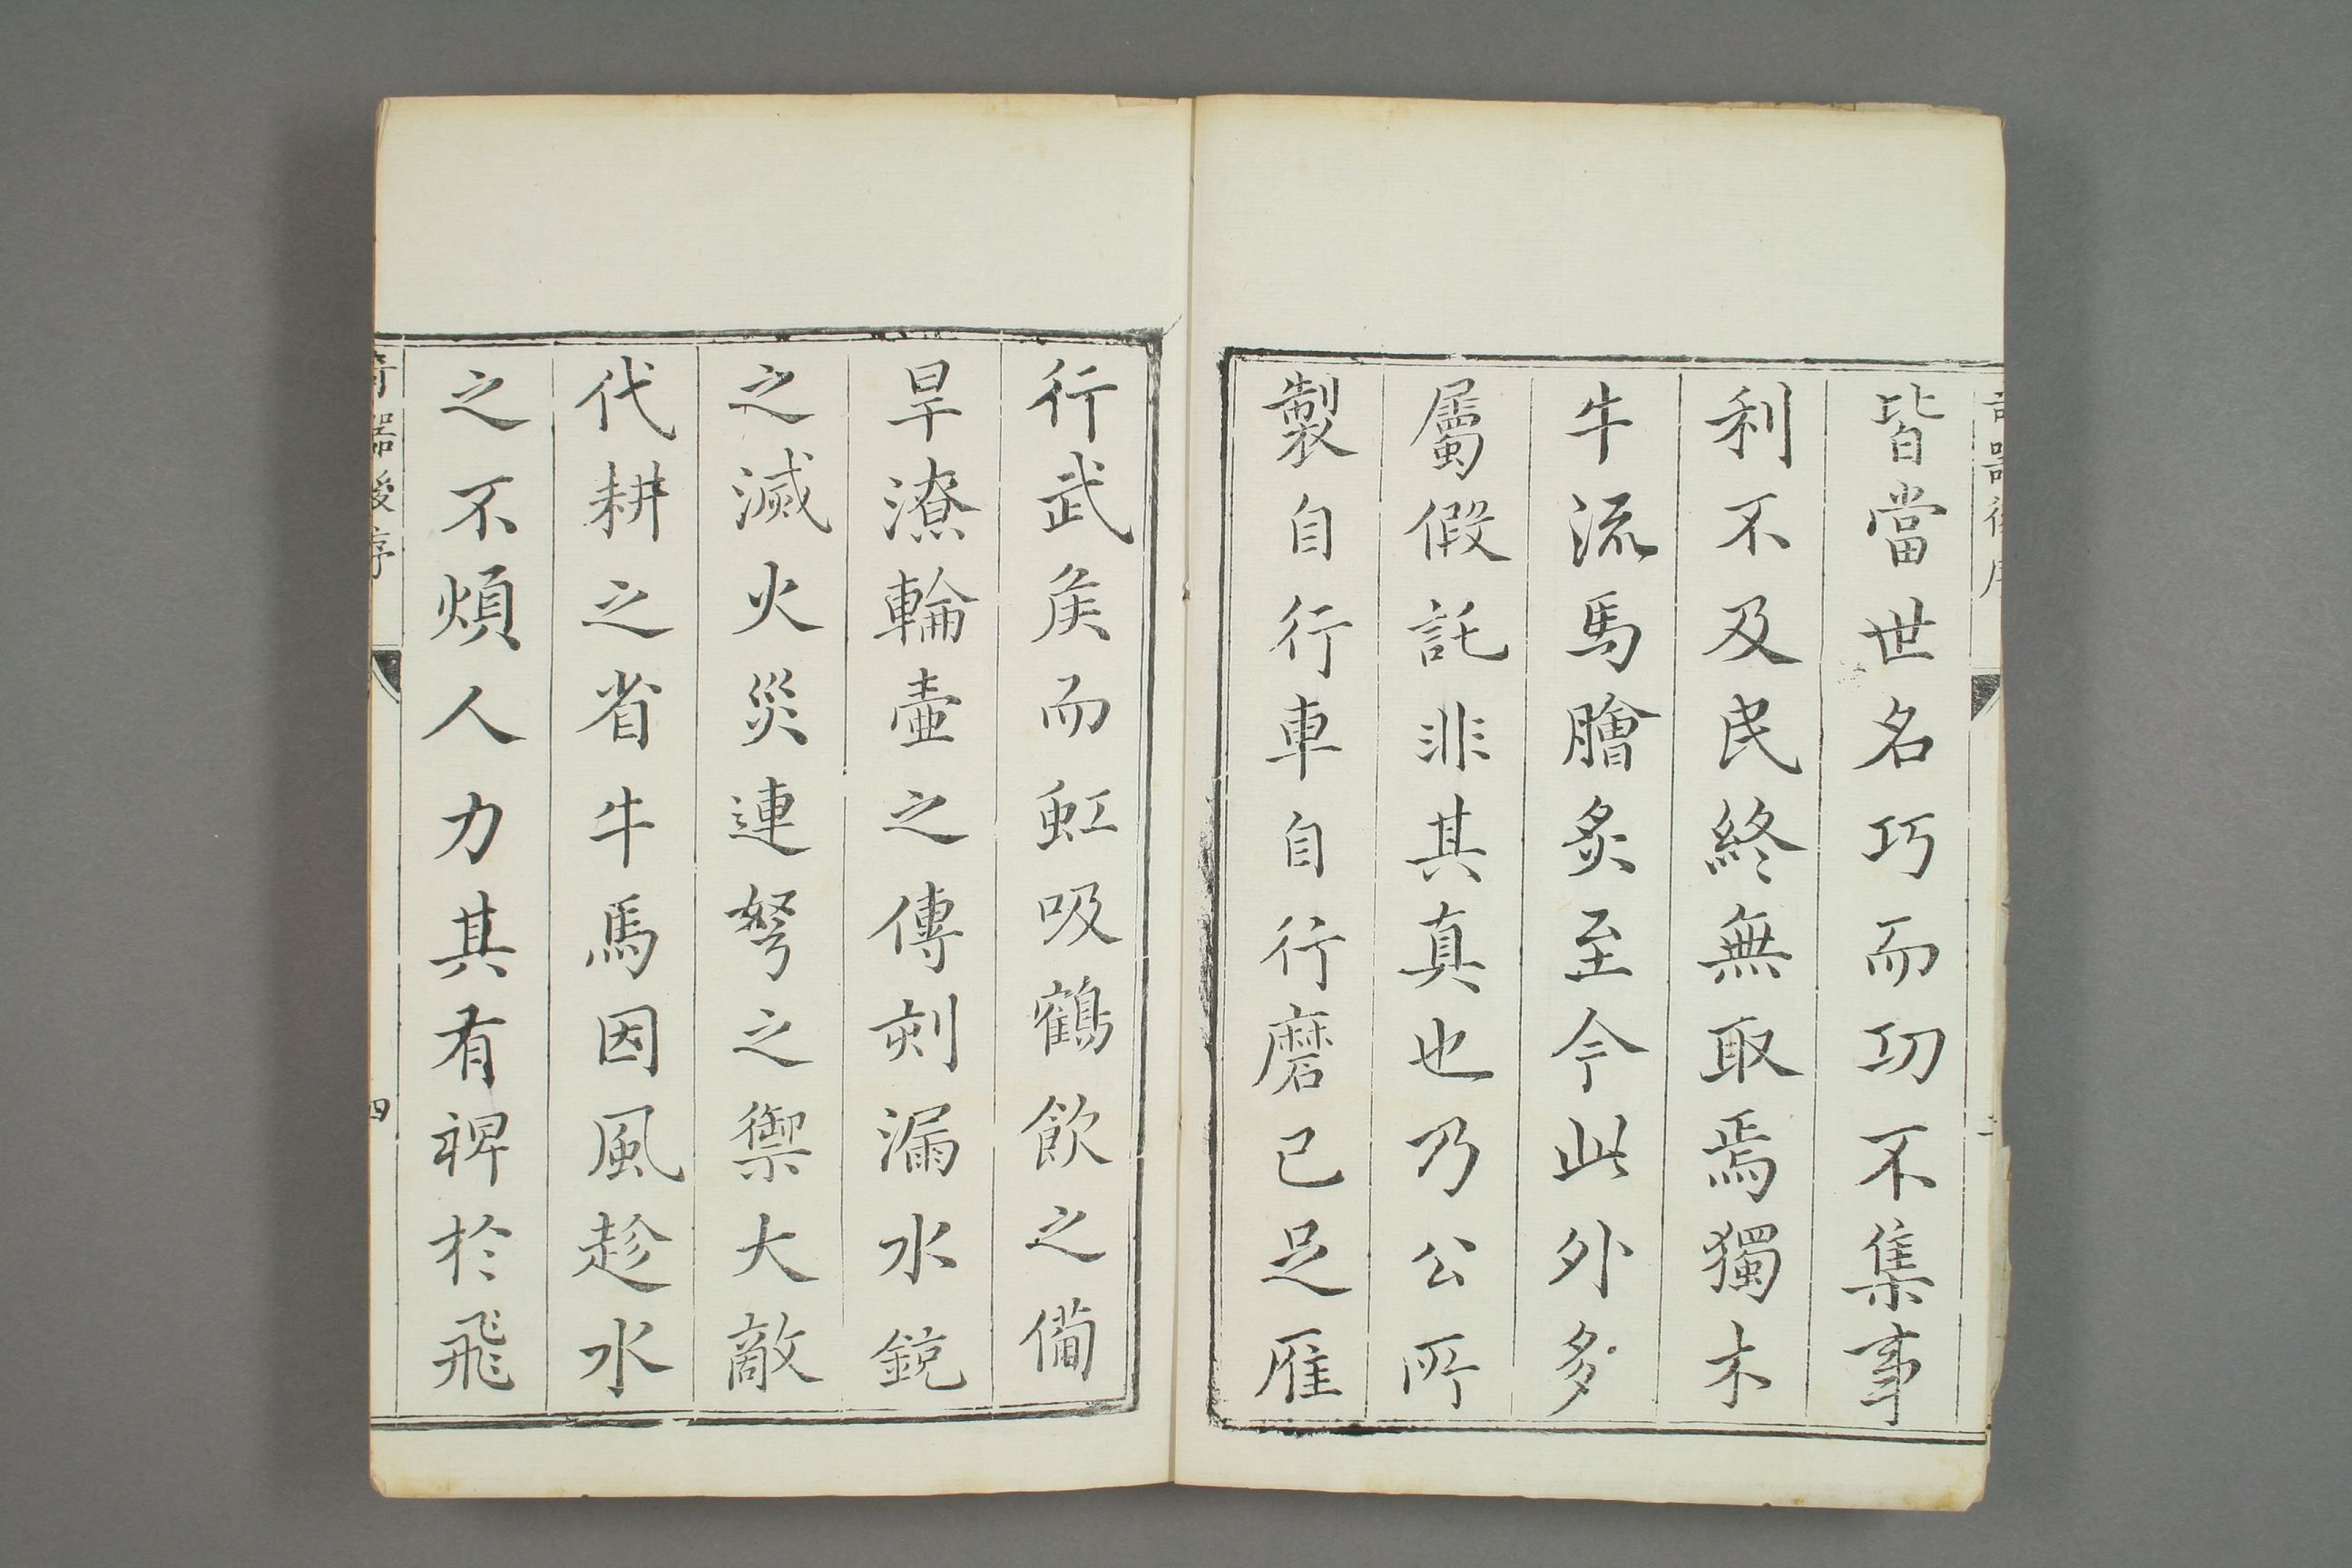 皆當世名巧而功不集事
利不及民終無取焉獨木
牛流馬膾炙至今此外多
屬假託非其真也乃公所
製自行車自行磨已足雁
行武矦而虹吸鶴飲之備
旱潦輪壷之傳刻漏水銃
之滅火災連弩之禦大敵
代耕之省牛馬因風趁水
之不煩人力其有裨於飛
器後序
四